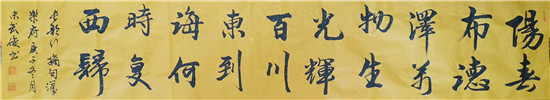 陽春
布德
澤萬
物生
光輝
百川
東到
海何
時复
西歸
長歌行摘句漢
樂府庚子冬月